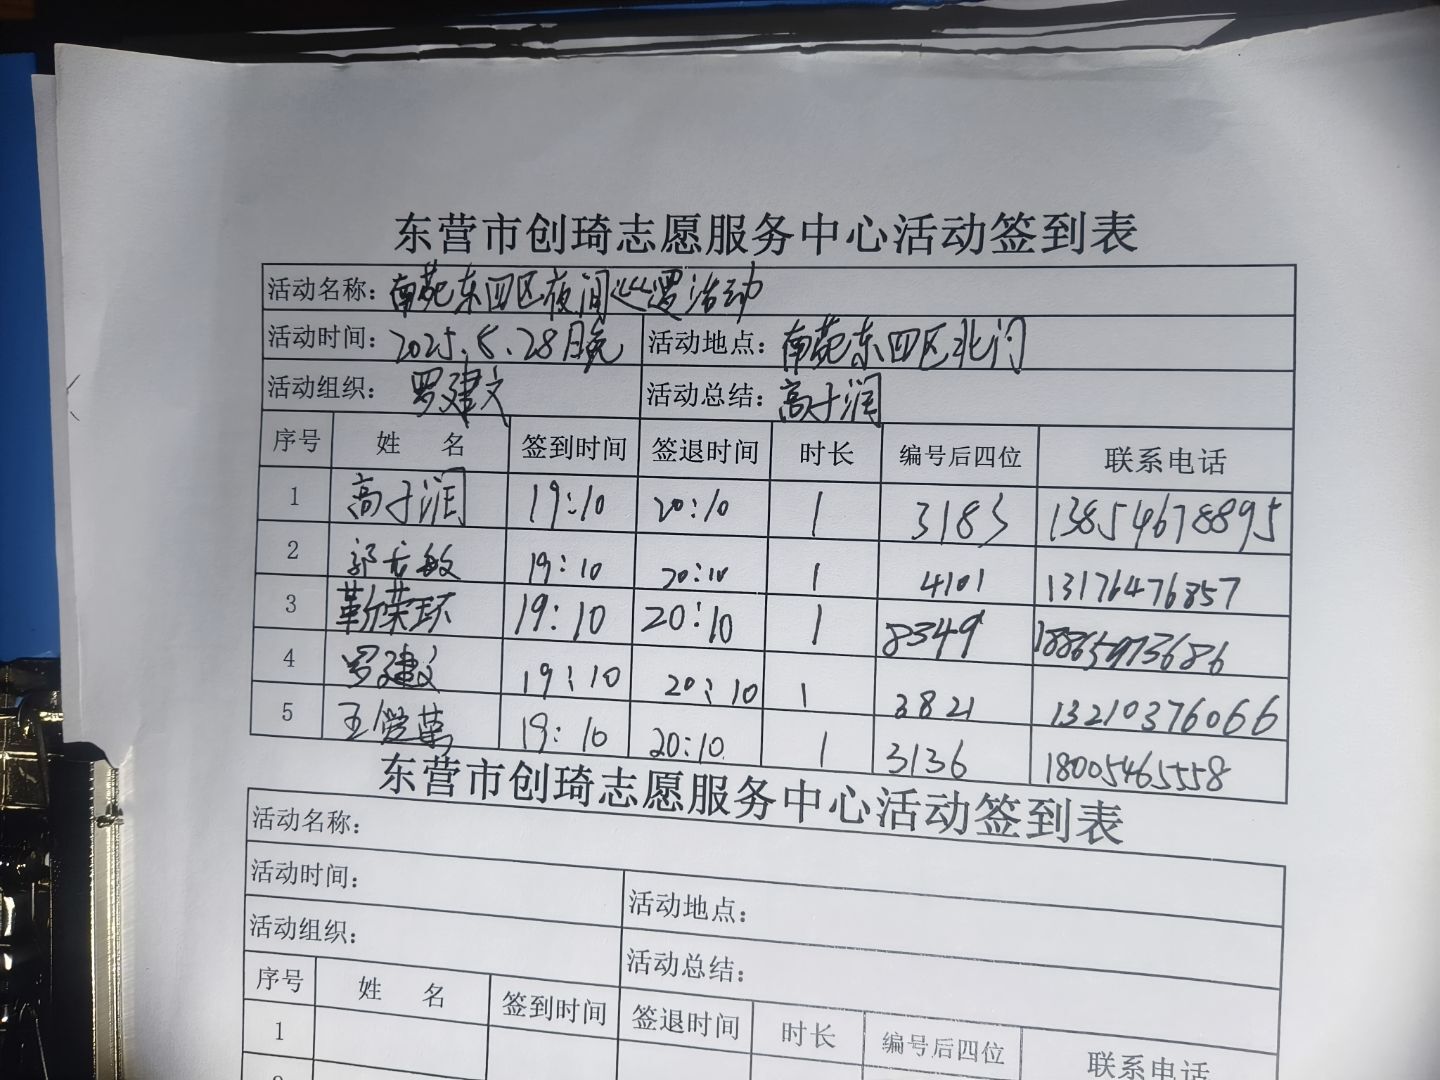 东营市创琦志愿服务中心活动签到表
活动名称：南苑东四区夜间巡逻活动
活动时间：2025.5.28日晚 活动地点：南苑东四区北门
活动组织：罗建文 活动总结：高于润
序号 姓名 签到时间 签退时间 时长 编号后四位 联系电话
1 高于润 19:10 20:10 1 3183 13854678895
2 19:10 20:10 1 4101 13176476357
3 靳荣环 19:10 20:10 1 8349 18865973686
4 罗建文 19:10 20:10 1 3821 13210376066
5 19:10 20:10 1 3136 18005465558
东营市创琦志愿服务中心活动签到表
活动名称：
活动时间： 活动地点：
活动组织： 活动总结：
序号 姓名 签到时间 签退时间 时长 编号后四位 联系电话
1